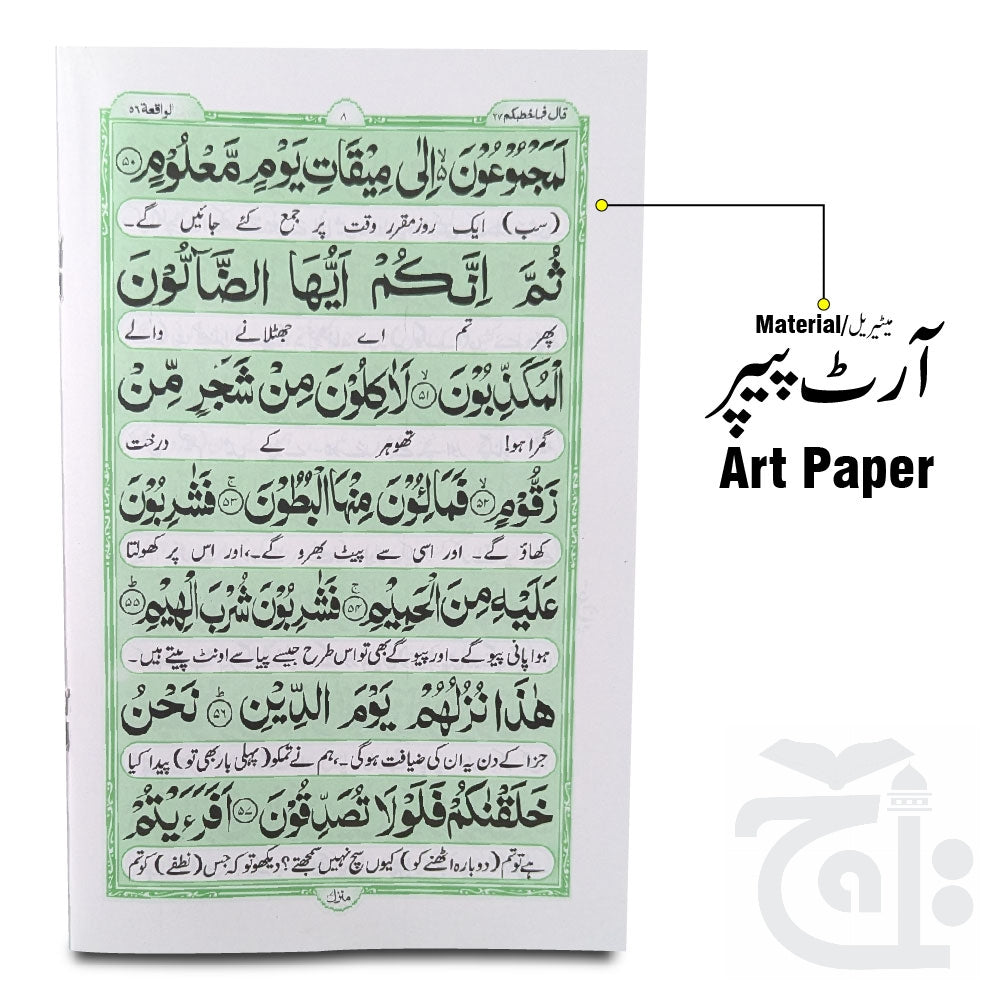 قال فما خطبکم ۲۷
۸
الواقعة ۵۶
لَمَجْمُوْعُوْنَ ۙ اِلٰى مِيْقَاتِ يَوْمٍ مَّعْلُوْمٍ ﴿۵۰﴾
(سب) ایک روز مقرر وقت پر جمع کئے جائیں گے۔
ثُمَّ اِنَّكُمْ اَيُّهَا الضَّآلُّوْنَ
پھر تم اے جھٹلانے والے
الْمُكَذِّبُوْنَ ۙ﴿۵۱﴾ لَاٰكِلُوْنَ مِنْ شَجَرٍ مِّنْ
گمراہو! تھوہر کے درخت
زَقُّوْمٍ ۙ﴿۵۲﴾ فَمَالِـُٔوْنَ مِنْهَا الْبُطُوْنَ ۚ﴿۵۳﴾ فَشٰرِبُوْنَ
کھاؤ گے۔ اور اسی سے پیٹ بھرو گے۔، اور اس پر کھولتا
عَلَيْهِ مِنَ الْحَمِيْمِ ۚ﴿۵۴﴾ فَشٰرِبُوْنَ شُرْبَ الْهِيْمِ ؕ﴿۵۵﴾
ہوا پانی پیو گے۔ اور پیو گے بھی تو اس طرح جیسے پیاسے اونٹ پیتے ہیں۔
هٰذَا نُزُلُهُمْ يَوْمَ الدِّيْنِ ؕ﴿۵۶﴾ نَحْنُ
جزا کے دن یہ ان کی ضیافت ہوگی۔، ہم نے تمکو (پہلی بار بھی تو) پیدا کیا
خَلَقْنٰكُمْ فَلَوْلَا تُصَدِّقُوْنَ ﴿۵۷﴾ اَفَرَءَيْتُمْ
ہے تو تم (دوبارہ اٹھنے کو) کیوں سچ نہیں سمجھتے؟ دیکھو تو کہ جس (نطفے) کو تم
منزل
Material/میٹیریل
آرٹ پیپر
Art Paper